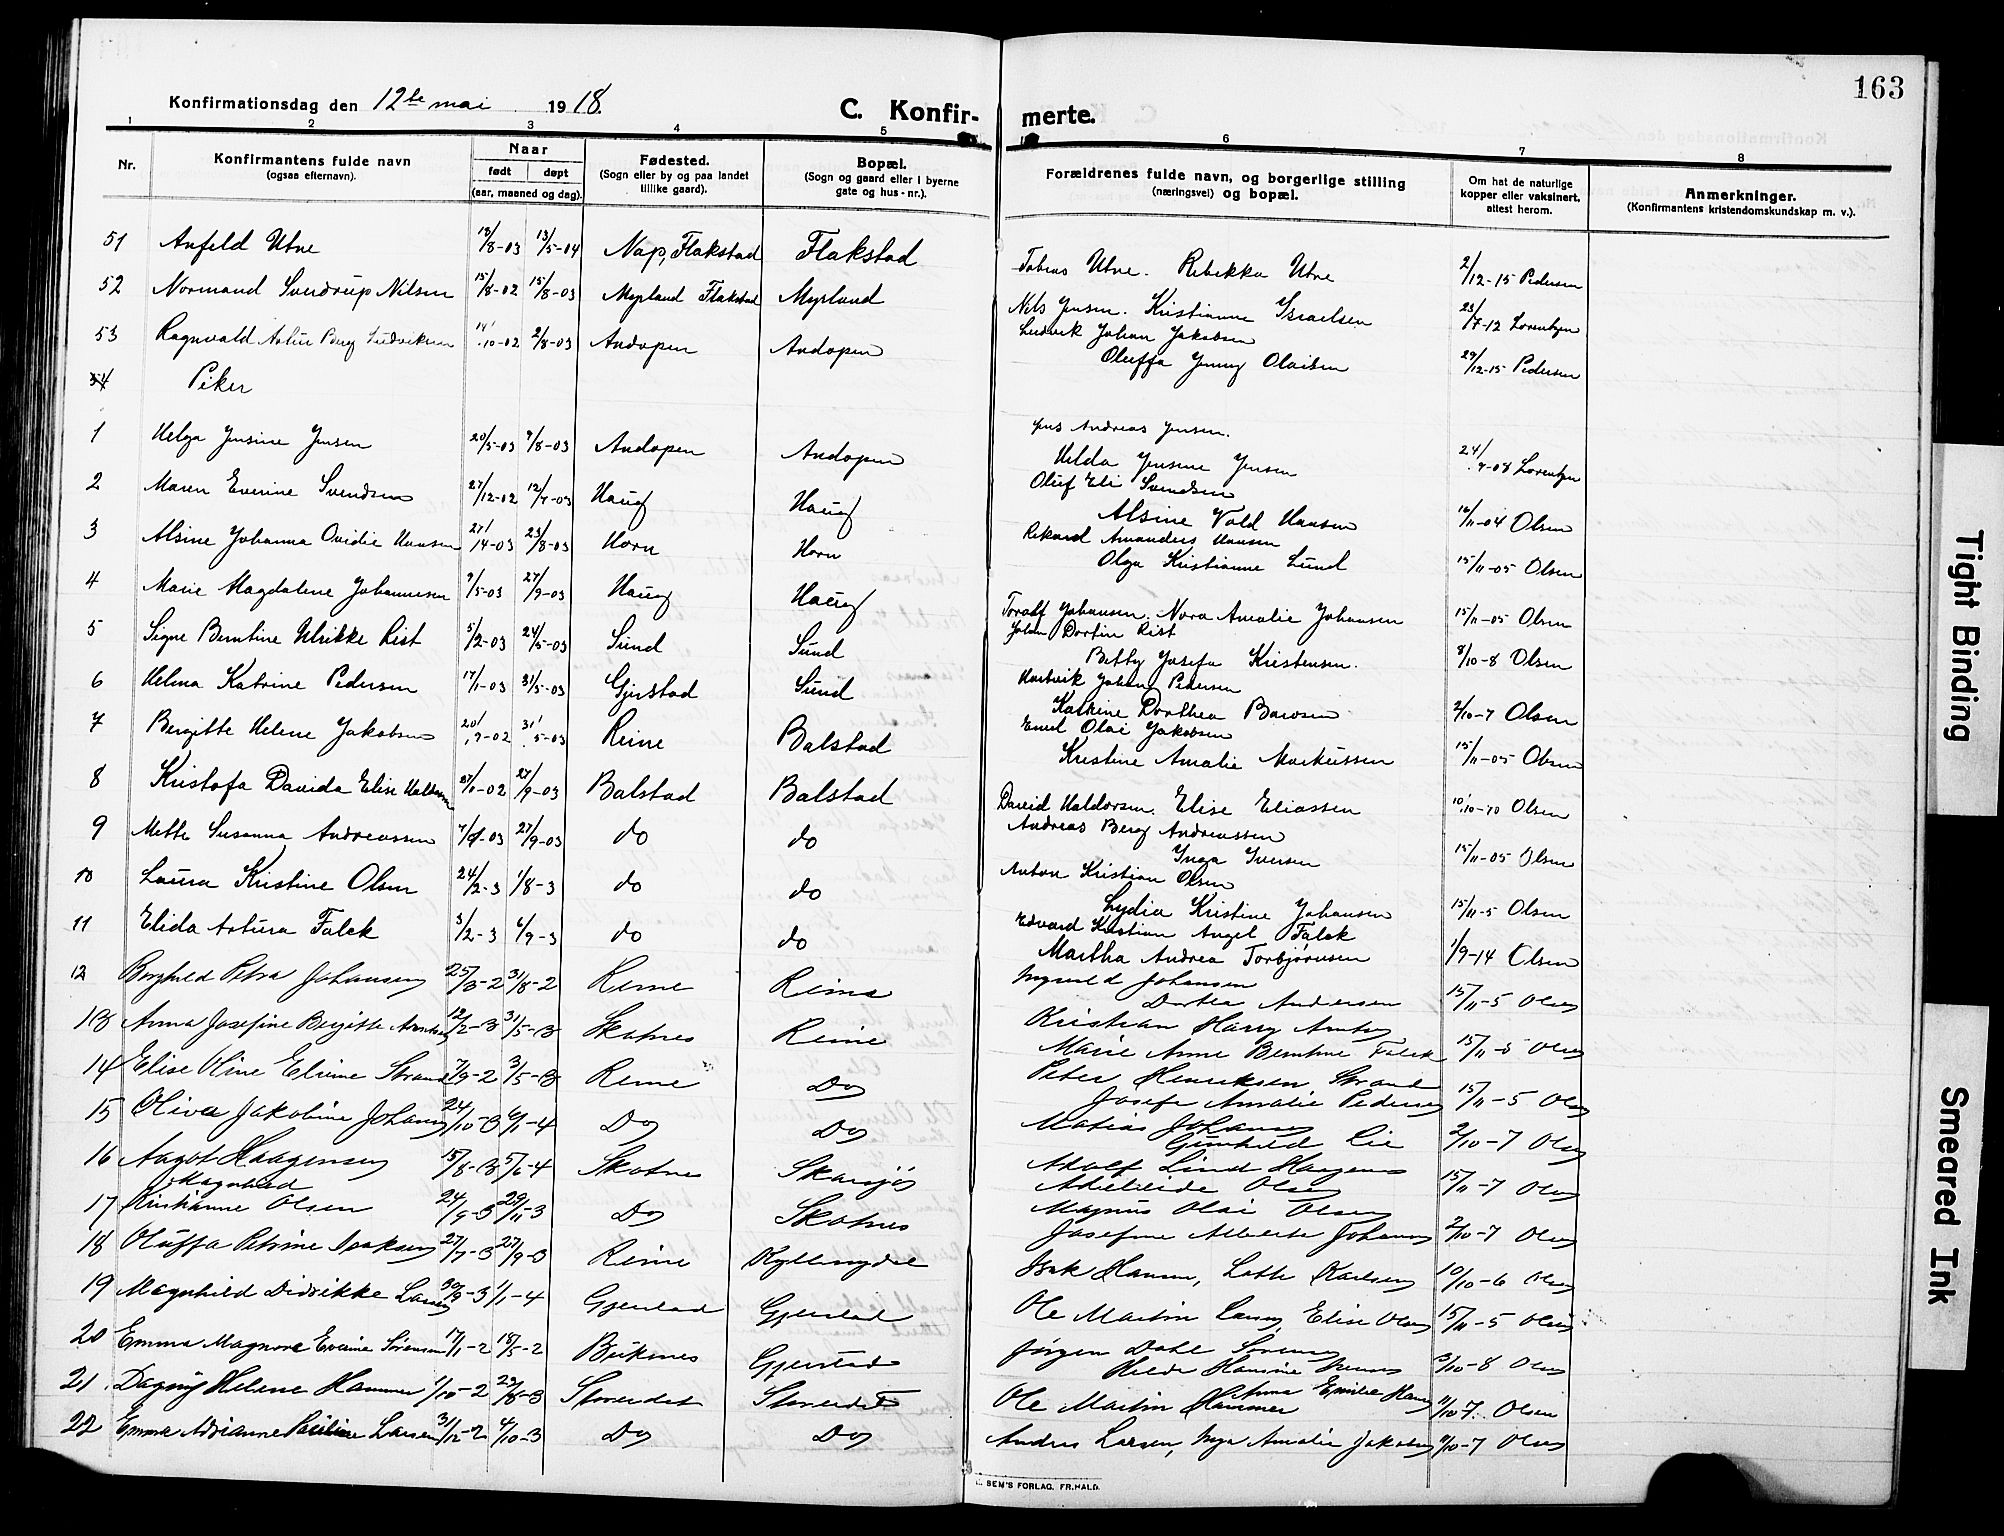 163
Konfirmationsdag den 12te mai 1918.
C. Konfir-
merte.
1 2 3 4 5 6 7 8
Nr.
Konfirmantens fulde navn
(ogsaa efternavn).
Naar
født døpt
(aar, maaned og dag).
Fødested.
(Sogn eller by og paa landet
tillike gaard).
Bopæl.
(Sogn og gaard eller i byerne
gate og hus-nr.).
Forældrenes fulde navn, og borgerlige stilling
(næringsvei) og bopæl.
Om hat de naturlige
kopper eller vaksinert,
attest herom.
Anmerkninger.
(Konfirmantens kristendomskundskap m. v.).
51 Anfeld Utne 18/8-03 13/5-04 Nap, Flakstad Flakstad Tobias Utne. Rebekka Utne 2/12-15 Pedersen
52 Normand Sverdrup Nilsen 15/8-02 15/8-03 Myrland Flakstad Myrland Nils Jensen. Kristianne Israelsen 23/7-12 Lorentzen
53 Ragnvald Artur Berg Ludviksen 14/10-02 2/8-03 Andopen Andopen Ludvik Johan Jakobsen
Oluffa Jenny Olaisen 29/12-15 Pedersen
54 Piker
1 Helga Jensine Jensen 20/5-03 9/8-03 Andopen Andopen Jens Andreas Jensen.
Hilda Jensine Jensen 24/9-08 Lorentzen
2 Maren Everine Svendsen 27/12-02 12/7-03 Haug Haug Oluf Eli Svendsen
Alsine Vold Hansen 16/11-04 Olsen
3 Alsine Johanna Ovidie Hansen 27/14-03 23/8-03 Horn Horn Rikard Amandus Hansen
Olga Kristianne Lund 15/11-05 Olsen
4 Marie Magdalene Johannesen 9/5-03 27/9-03 Haug Haug Toralf Johansen. Nora Amalie Johansen 15/11-05 Olsen
5 Signe Berntine Ulrikke Rist 5/2-03 24/5-03 Sund Sund Johan Dortin Rist
Betty Josefa Kristensen. 8/10-8 Olsen
6 Helma Katrine Pedersen 17/1-03 31/5-03 Gjerstad Sund Hartvik Johan Pedersen
Katrine Dorthea 2/10-7 Olsen
7 Bergitte Helene Jakobsen 20/9-02 31/5-03 Reine Balstad Emil Olai Jakobsen
Kristine Amalie Markussen 15/11-05 Olsen
8 Kristofa Davida Elise Haldorsen /11-02 27/9-03 Balstad Balstad David Haldorsen. Elise Eliassen 10/10-10 Olsen
9 Mette Susanna Andreassen 27/9-03 do do Andreas Berg Andreassen
Inga Iversen 15/11-05 Olsen
10 Laura Kristine Olsen 24/2-3 1/8-3 do do Anton Kristian Olsen
Lydia Kristine Johansen 15/11-5 Olsen
11 Elida Artura Falck 3/2-3 6/9-3 do do Edvard Kristian Angel Falck
Martha Andrea Torbjørnsen 1/9-14 Olsen
12 Borghild Petra Johansen 25/3-2 31/8-2 Reine Reine Ingvald Johansen
Dortea Andersen 15/11-5 Olsen
13 Anna Josefine Bergitte Arntsen 12/2-3 31/5-3 Skotnes Reine Kristian Harry Arntsen
Marie Anne Berntine Falck 15/11-5 Olsen
14 Elise Oline Elvine Strand 7/9-2 3/5-3 Reine Do Peter Henriksen Strand
Josefa Amalie Pedersen 15/11-5 Olsen
15 Oliva Jakobine Johansen 24/10-3 6/1-4 Do Do Matias Johansen
Gunhild Lie 2/10-7 Olsen
16 Aagot Haagensen 15/8-3 5/6-4 Skotnes Skarsjø Adolf Lind Haagensen
Adeleide Olsen 15/11-7 Olsen
Magnhild
17 Kristianne Olsen 24/9-3 29/11-3 Do Skotnes Magnus Olai Olsen
Josefine Alberte Johansen 2/10-7 Olsen
18 Oluffa Petrine Isaksen 27/7-3 27/9-3 Reine Kyllingdal Isak Hansen, Lotte Karlsen 10/10-6 Olsen
19 Magnhild Didrikke Larsen 30/9-3 1/1-4 Gjerstad Gjerstad Ole Martin Larsen, Elise Olsen 15/11-5 Olsen
20 Emma Magnore Evine Sørensen 17/1-2 18/5-2 Buksnes Gjerstad Jørgen Dahl Sørensen
Hilda Hansine 3/10-8 Olsen
21 Dagny Helene Hammer 1/10-2 22/8-3 Storeidet Storeidet Ole Martin Hammer
Anna Emilie 11/10-7. Olsen
22 Emma Adrianne Pauline Larsen 31/12-2 4/10-3 Do Do Andres Larsen, Inga Amalie Jakobsen 9/10-7 Olsen
SEM'S FORLAG, FR.HALD.
Tight Binding
Smeared Ink